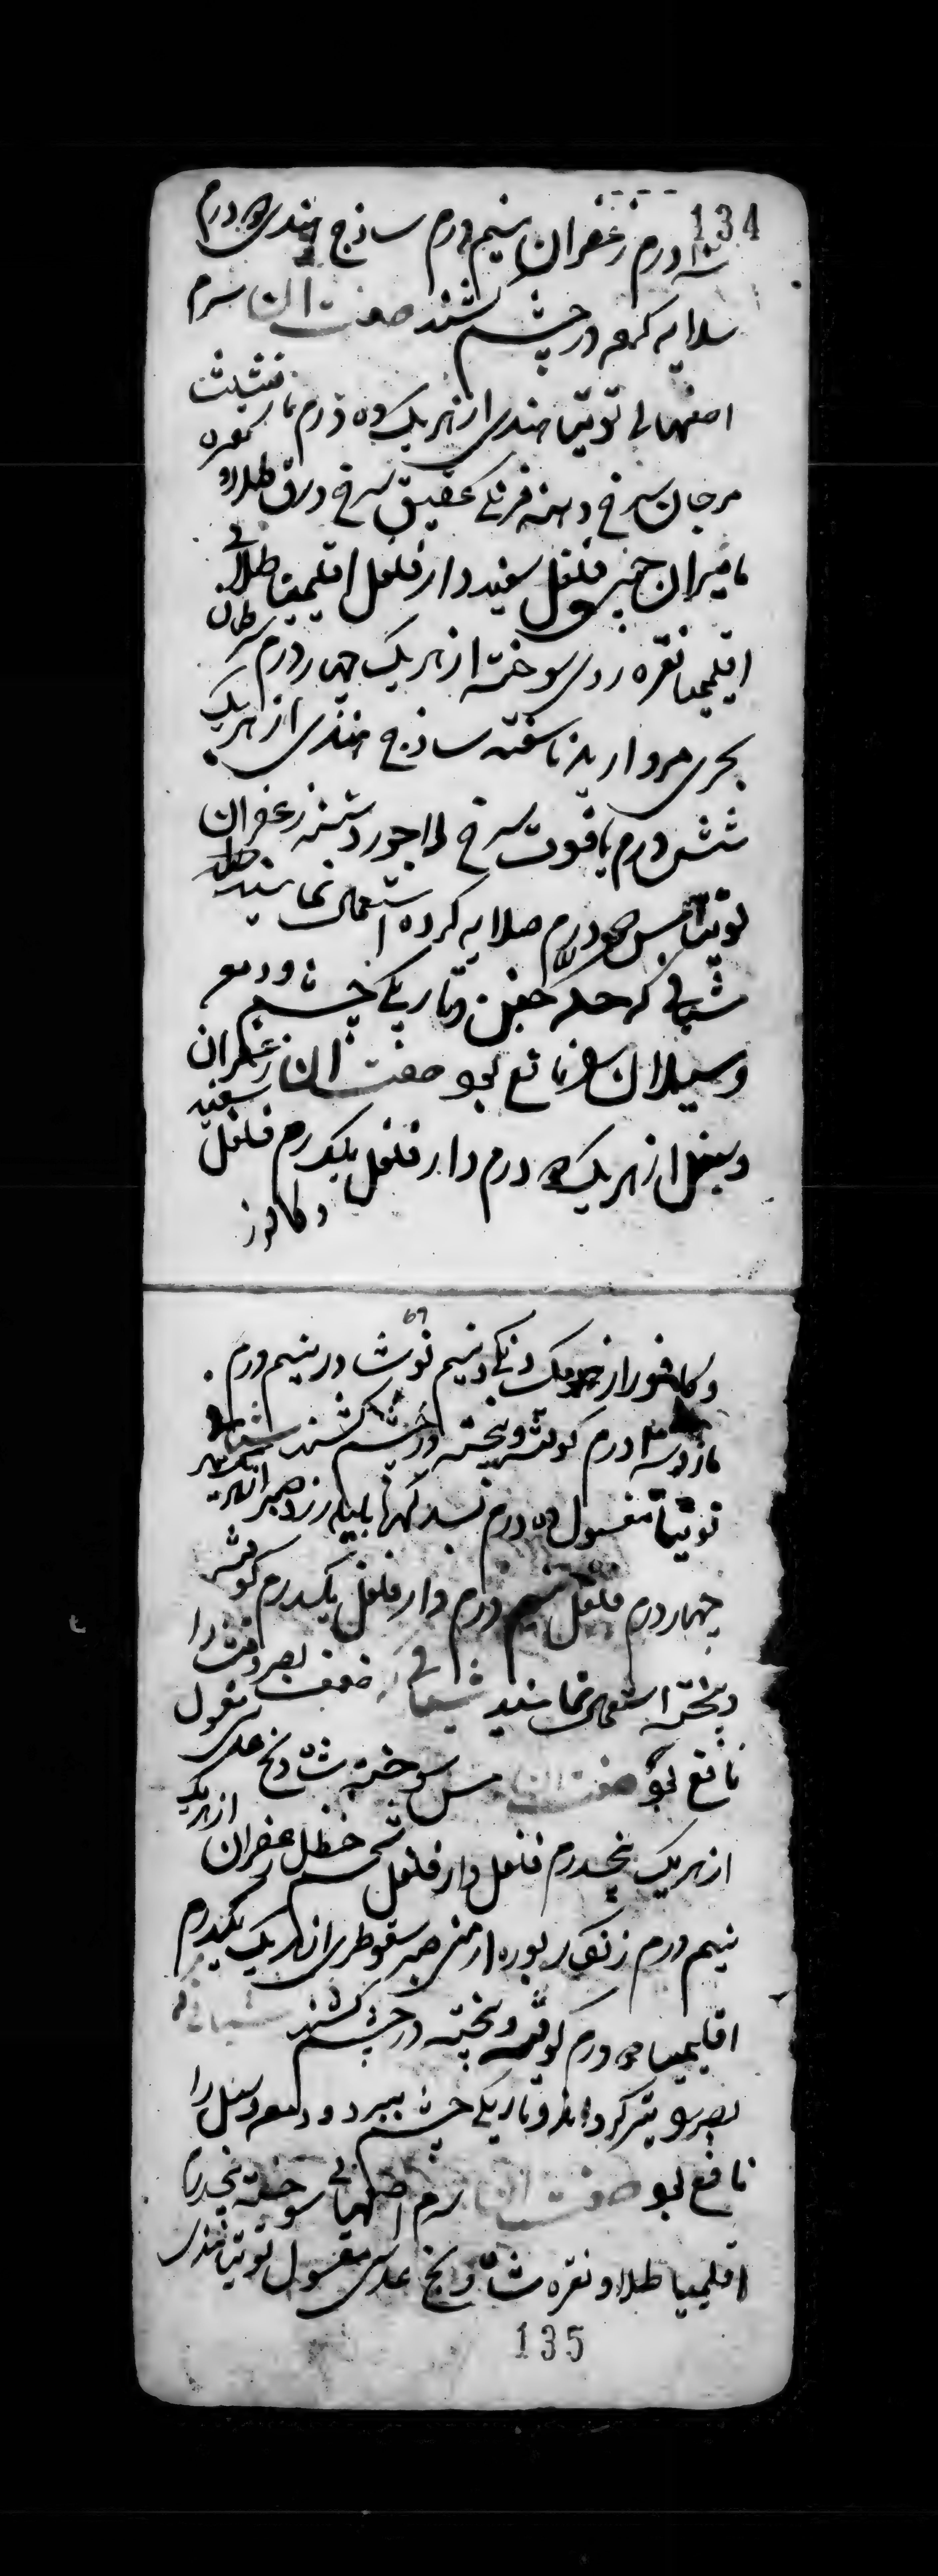 134
سه درم زعفران نیم درم ساذج هندی دو درم
سلایه کرده در چشم کشند صفت آن سرمه
اصفهانی توتیا هندی از هر یک ده درم مارقشیشا
مرجان سرخ دهنه فرنگی عقیق سرخ ورق طلا از
مامیران چینی فلفل سفید دارفلفل اقلیمیا طلائی
اقلیمیا نقره روی سوخته از هر یک چهار درم سرطان
بحری مروارید ناسفته ساذج هندی از هر یک
شش درم یاقوت سرخ لاجورد شسته زعفران
توتیا مس دو درم صلایه کرده استعمال نمایند
شیافی که حکه جفن و تاریکی چشم و دمعه
و سیلان را نافع بود صفت آن زعفران
و سنبل از هر یک دو درم دارفلفل یکدرم فلفل سفید
و کافور
69
و کافور از هر یک دنکی و نیم نوشادر نیم درم
مازو سه درم کوفته و بیخته در چشم کشند شیاف
توتیا مغسول ده درم بسد کهربا هلیله زرد صبر از هر یک
چهار درم فلفل نیم درم دارفلفل یکدرم کوفته
و بیخته استعمال نمایند شیافی که ضعف بصر را
نافع بود صفت آن مس سوخته شادنج عدسی مغسول
از هر یک پنجدرم فلفل دارفلفل شحم حنظل زعفران از هر یک
نیم درم زنگار بوره ارمنی صبر سقوطری از هر یک یکدرم
اقلیمیا دو درم کوفته و بیخته در چشم کشند شیافی که
بصر را تیز کرداند و تاریکی چشم ببرد و دمعه و سبل را
نافع بود صفت آن سرمه اصفهانی سوخته پنجدرم
اقلیمیا طلا و نقره شادنج عدسی مغسول توتیا هندی
135